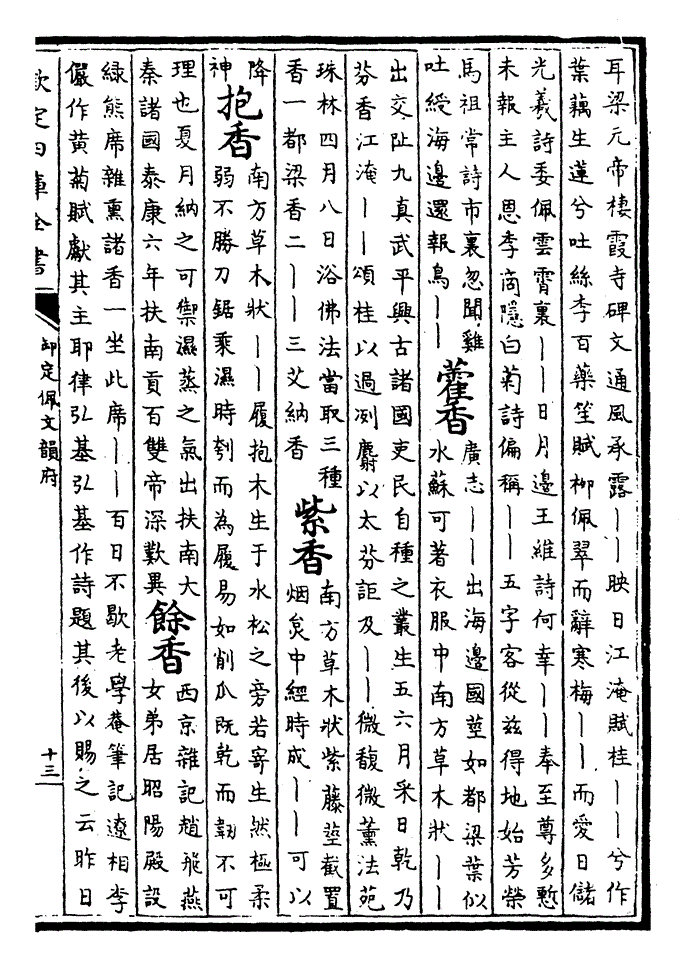 耳梁元帝棲霞寺碑文通風承露｜｜映日江淹賦桂｜｜兮作
葉藕生蓮兮吐絲李百藥笙賦柳佩翠而辭寒梅｜｜而愛日儲
光羲詩委佩雲霄裏｜｜日月邊王維詩何幸｜｜奉至尊多慙
未報主人恩李商隱白菊詩偏稱｜｜五字客從兹得地始芳榮
馬祖常詩市裏忽聞雞
吐綬海邊還報鳥｜｜
藿香
廣志｜｜出海邊國莖如都梁葉似
水蘇可著衣服中南方草木狀｜｜
出交阯九真武平興古諸國吏民自種之叢生五六月采日乾乃
芬香江淹｜｜頌桂以過冽麝以太芬詎及｜｜微馥微薰法苑
珠林四月八日浴佛法當取三種
香一都梁香二｜｜三艾納香
紫香
南方草木狀紫藤莖截置
烟炱中經時成｜｜可以
降
神
抱香
南方草木狀｜｜履抱木生于水松之旁若寄生然極柔
弱不勝刀鋸乘濕時刳而為履易如削瓜既乾而韌不可
理也夏月納之可禦濕蒸之氣出扶南大
秦諸國泰康六年扶南貢百雙帝深歎異
餘香
西京雜記趙飛燕
女弟居昭陽殿設
緑熊席雜熏諸香一坐此席｜｜百日不歇老學菴筆記遼相李
儼作黄菊賦獻其主耶律弘基弘基作詩題其後以賜之云昨日
欽定四庫全書
御定佩文韻府
十三